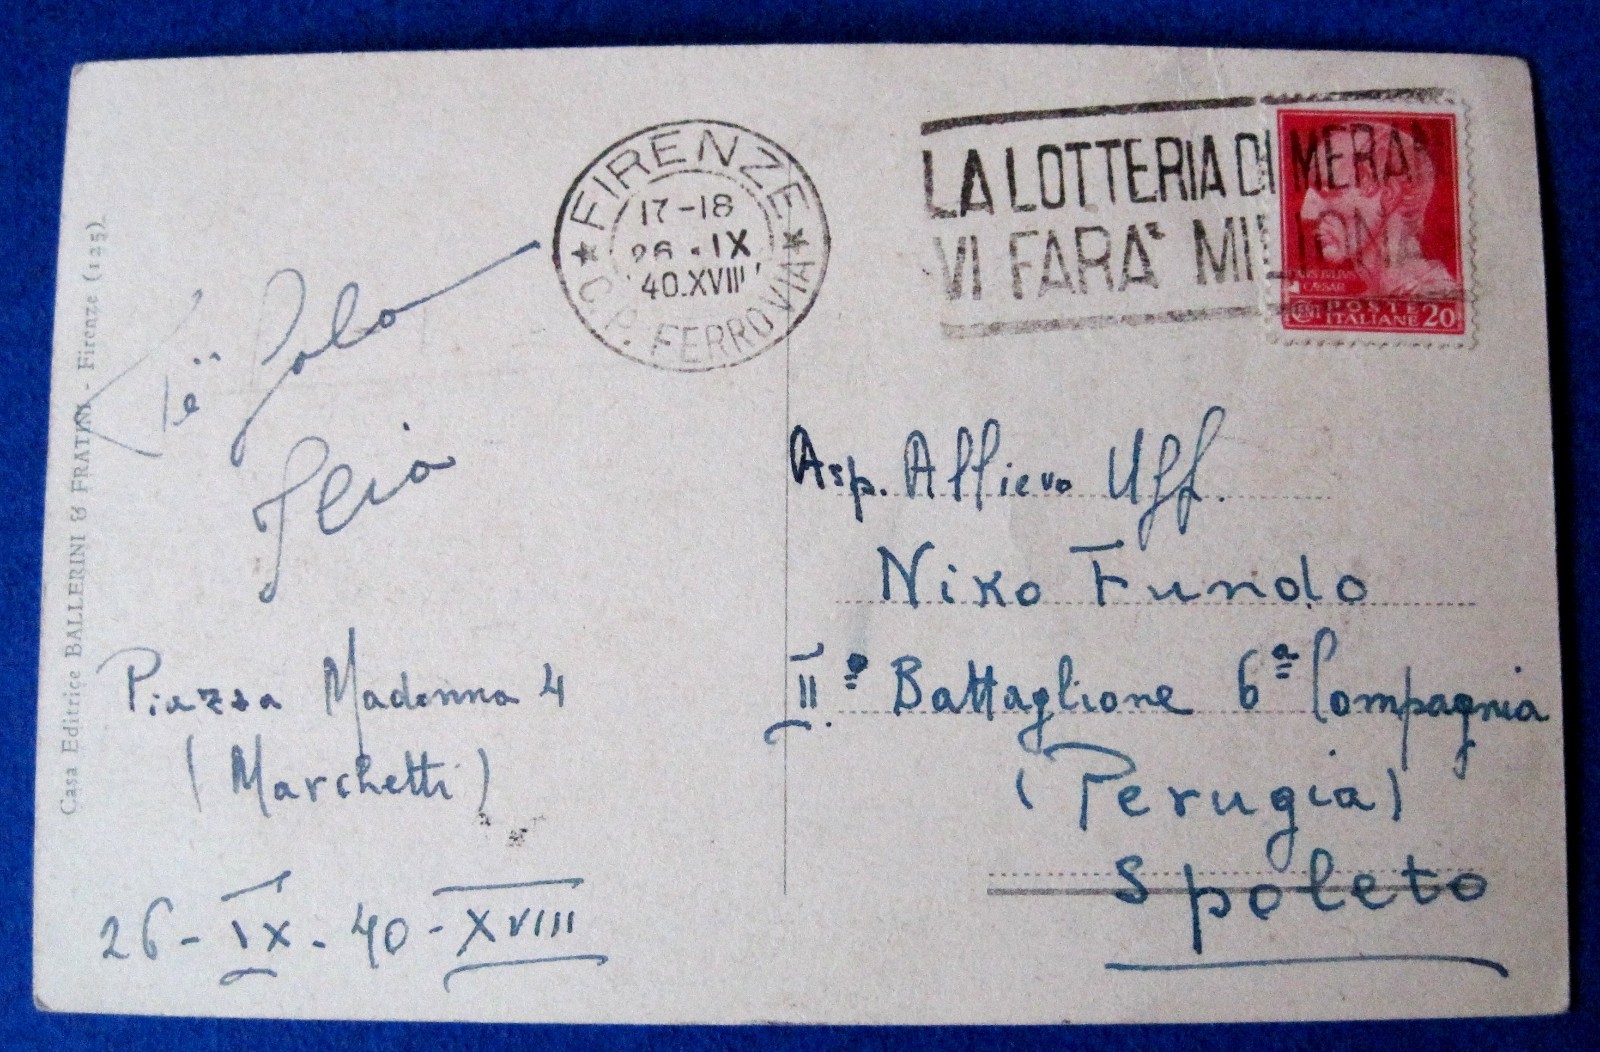 Casa Editrice BALLERINI & FRATINI - Firenze (125)
FIRENZE
17-18
26 . IX
40.XVIII
C.P. FERROVIA
LA LOTTERIA DI MERAN
VI FARA' MILIONA
CAESAR
CENT POSTE
ITALIANE 20
Piazza Madonna 4
(Marchetti)
26 - IX - 40 - XVIII
Asp. Allievo Uff.
Niko Fundo
II° Battaglione 6ª Compagnia
(Perugia)
Spoleto